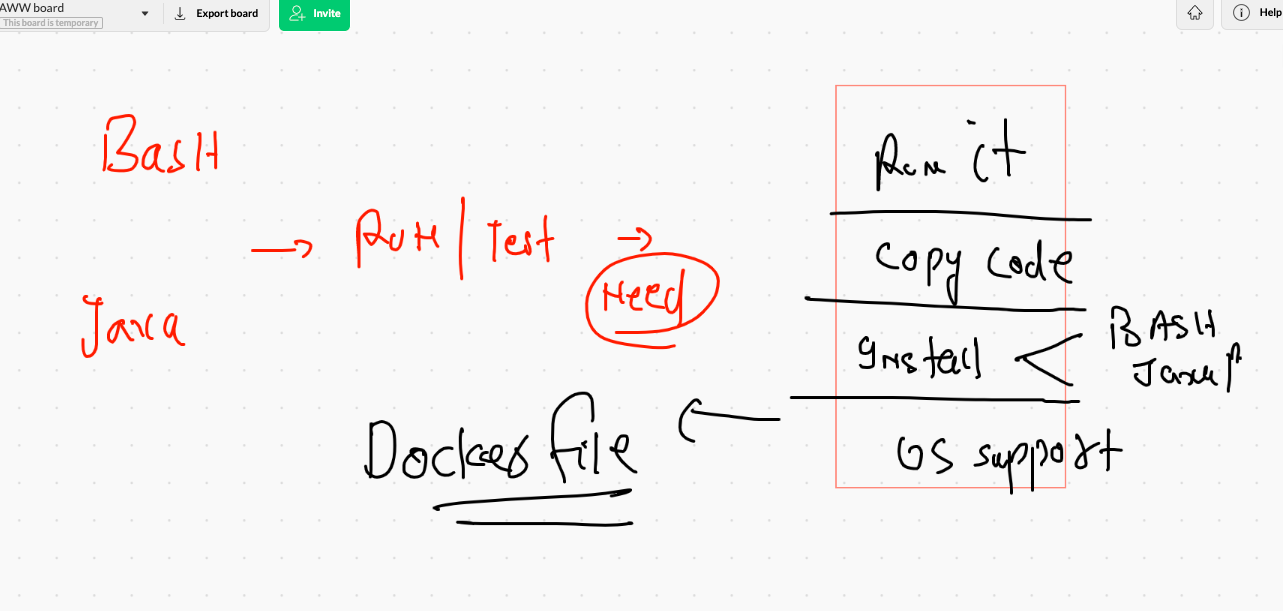 AWW board
This board is temporary
Export board
Invite
Help
BasH
Java
→ RUN | Test →
Need
Run it
Copy Code
Install < BASH
Java
OS support
← Dockerfile